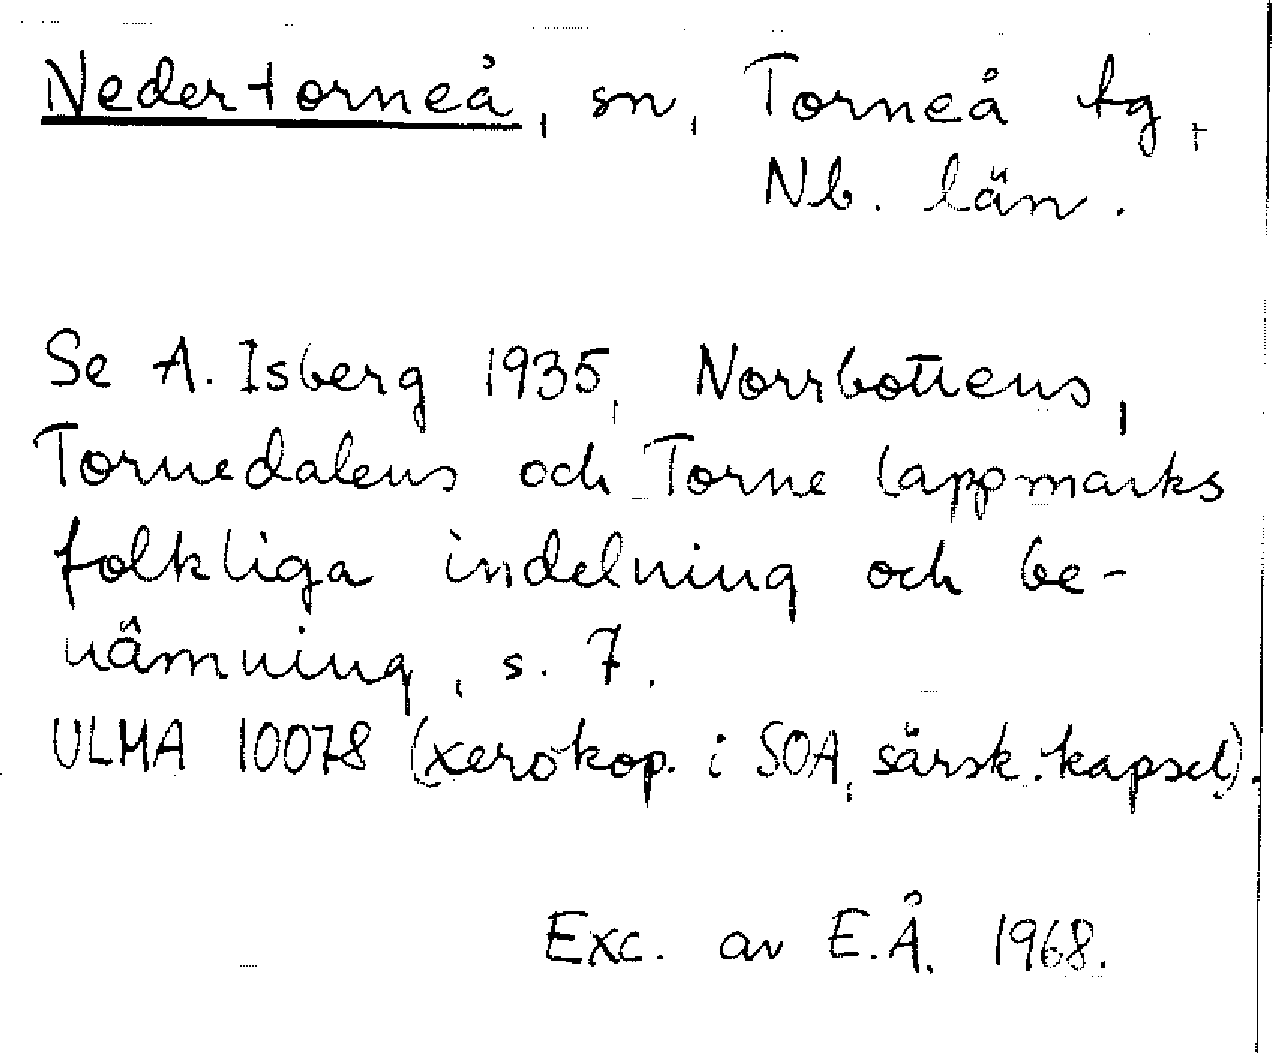 Nedertorneå, sn, Torneå tg,
Nb. län.
Se A. Isberg 1935, Norrbottens,
Tornedalens och Torne lappmarks
folkliga indelning och be-
nämning, s. 7.
ULMA 10078 (xerokop. i SOA, särsk. kapsel).
Exc. av E.Å. 1968.